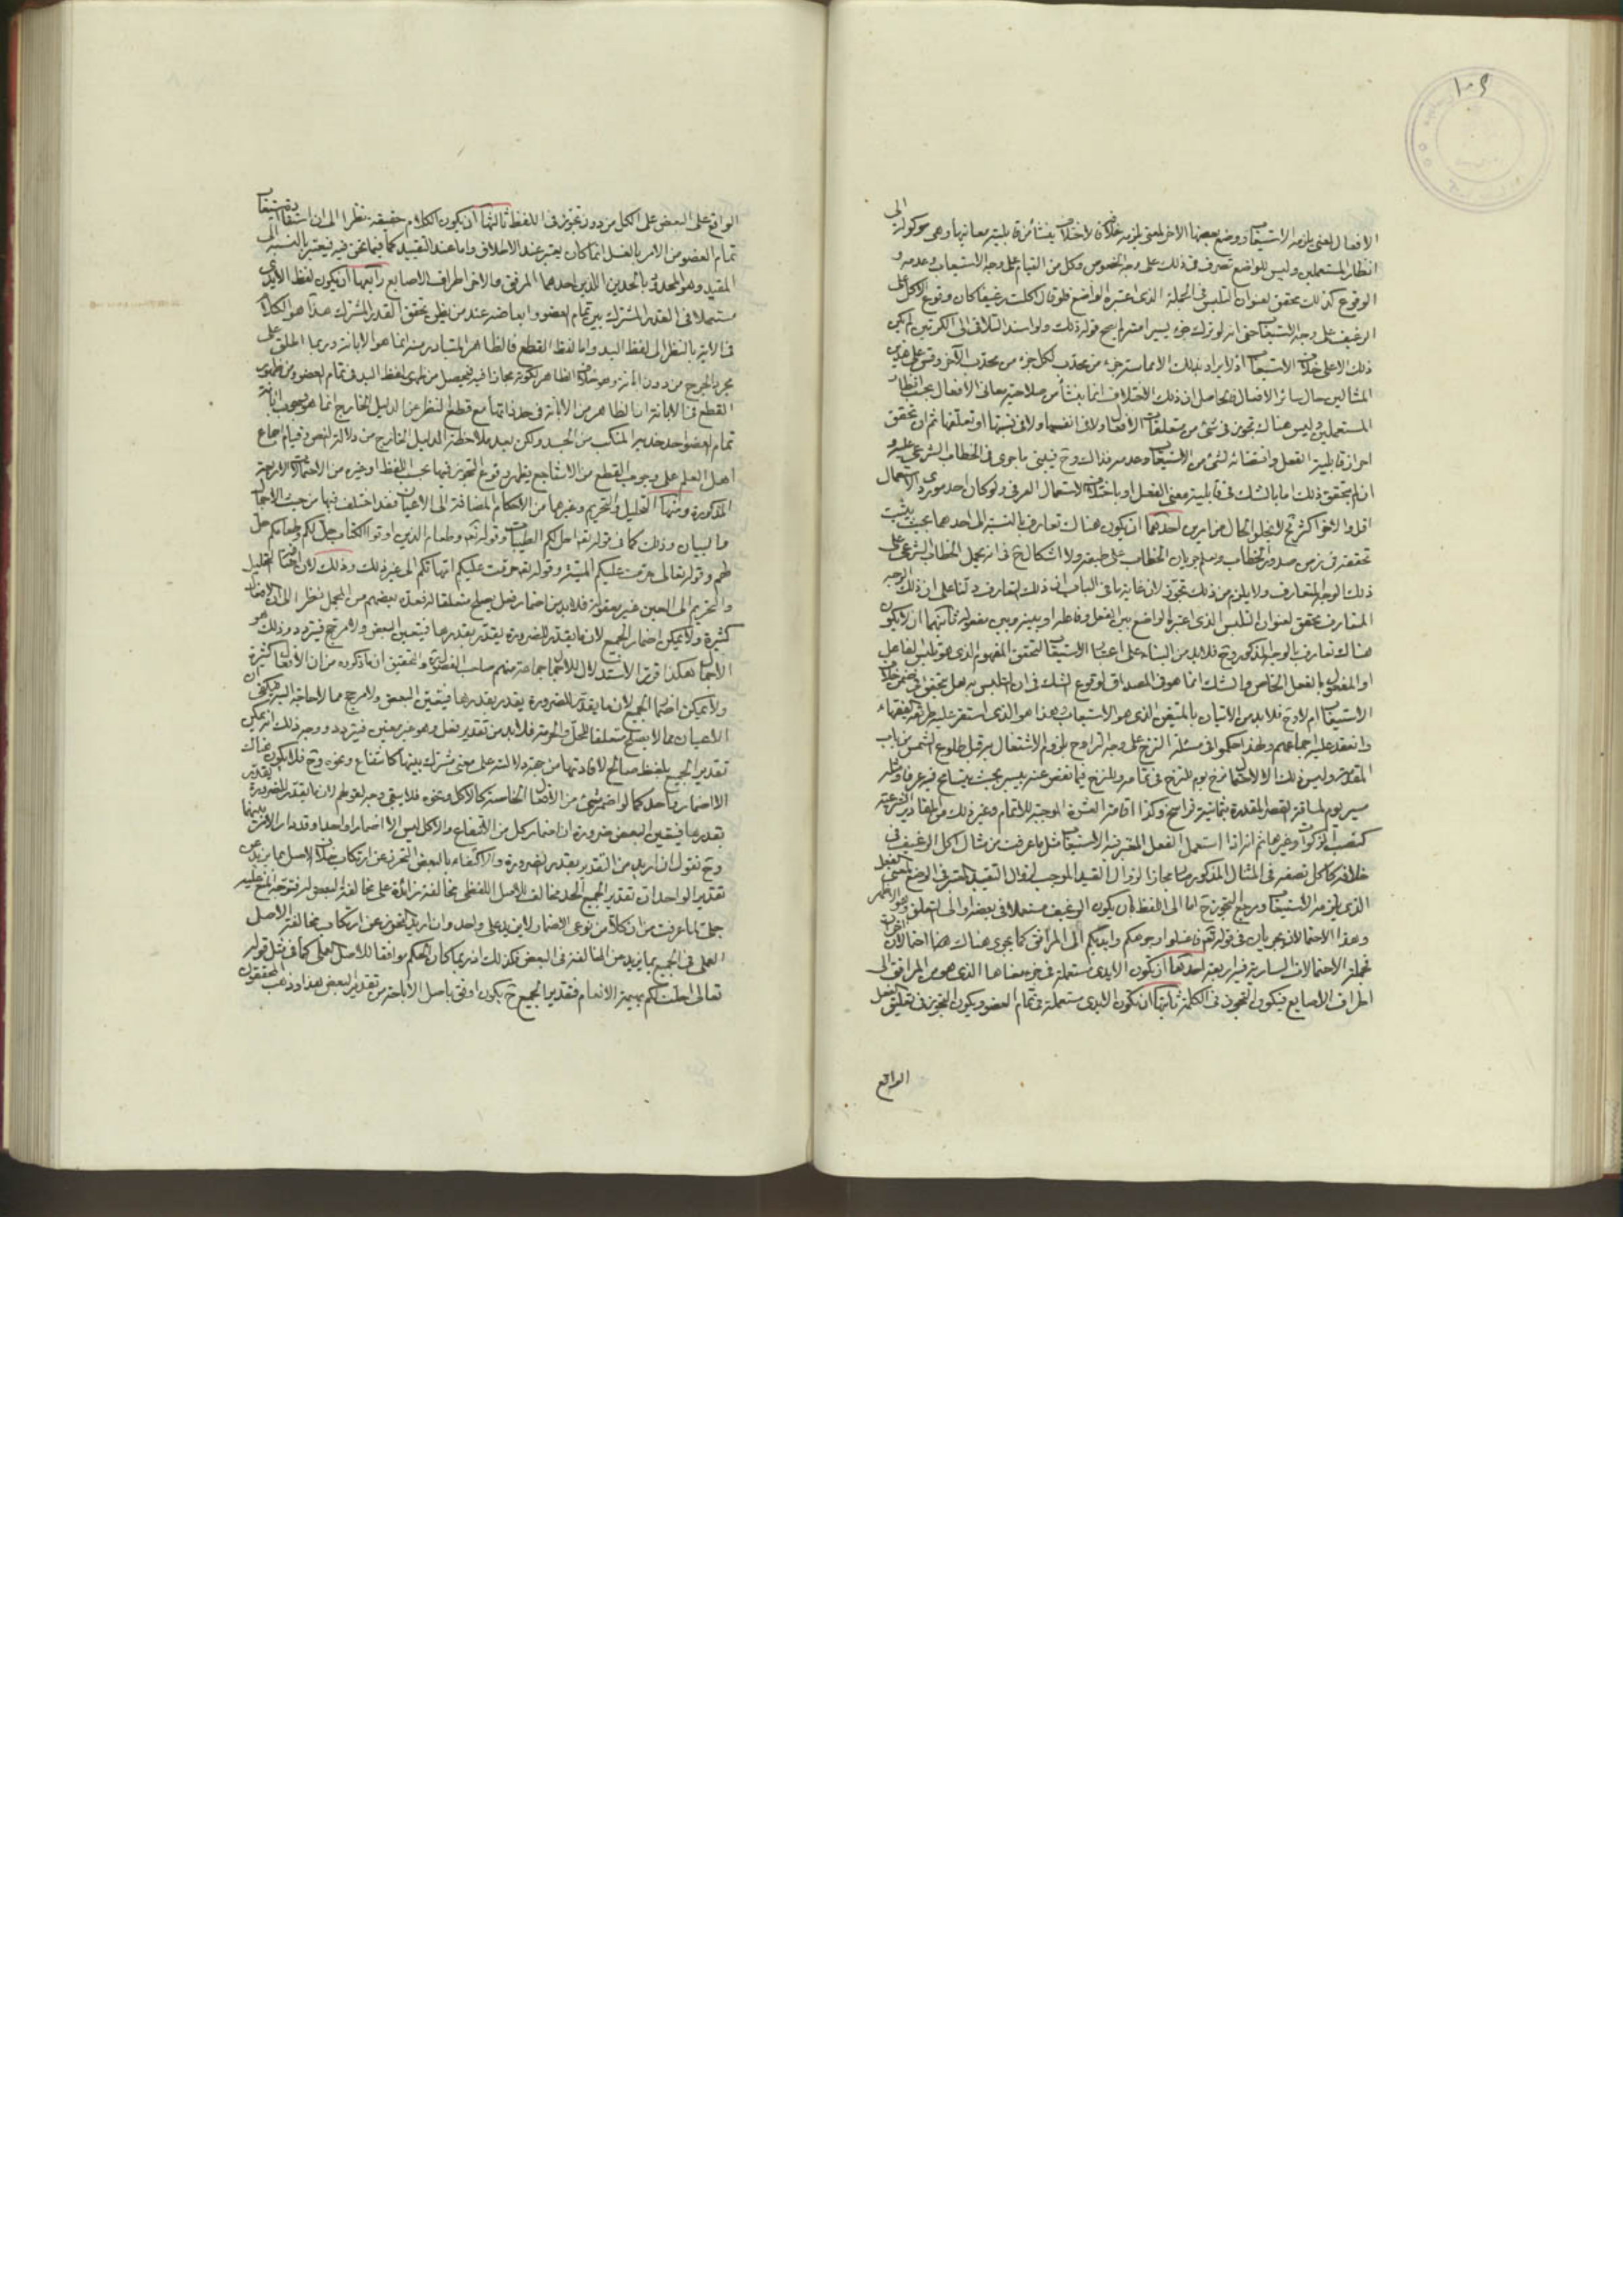 ١٠٩
الافعال لمعنى يلزمه الاستيعاب ووضع بعضها الاخر لمعنى يلزمه خلافه لاختلاف ينشأ من قابلية معانيها وهى موكول الى
انظار المستعملين وليس للواضع تصرف فى ذلك على وجه الخصوص وكل من القيام على وجه الاستيعاب وعدمه و
الوقوع كذلك محقق لعنوان التلبس فى الجملة الذى اعتبره الواضع فلو قال اكلت رغيفا كان وقوع الاكل على
الرغيف على وجه الاستيعاب حتى انه لو ترك جزء يسير منه لم يصح قوله ذلك ولو اسند التلاقى الى الكرتين لم يكن
ذلك الا على خلاف الاستيعاب اذ لا يراد بذلك الا مماسة جزء من محدب لكل جزء من محدب الآخر وقس على هذين
المثالين حال سائر الافعال فالحاصل ان ذلك الاختلاف انما ينشأ من صلاحية معانى الافعال بحسب انظار
المستعملين وليس هناك تجوز فى شئ من متعلقات الافعال ولا فى انفسها ولا فى نسبتها او تعلقها ثم ان تحقق
احراز قابلية الفعل واقتضائه لشئ من الاستيعاب وعدمه فذاك وح فيبنى ما جرى فى الخطاب الشرعى عليه و
ان لم يتحقق ذلك اما بالشك فى قابلية معنى الفعل او باختلاف الاستعمال العرفى ولو كان احد موردى الاستعمال
اقل والاخر اكثر فح لا يخلو الحال من امرين احدهما ان يكون هناك تعارف بالنسبة الى احدهما بحيث يثبت
تحققه فى زمن صدور الخطاب ويعلم جريان الخطاب على طبقه ولا اشكال ح فى انه يحمل الخطاب الشرعى على
ذلك الوجه المتعارف ولا يلزم من ذلك تجوز لان غاية ما فى الباب ان ذلك التعارف دلنا على ان ذلك الوجه
المتعارف محقق لعنوان التلبس الذى اعتبره الواضع بين الفعل وفاعله او بينه وبين مفعوله ثانيهما ان لا يكون
هناك تعارف بالوجه المذكور وح فلابد من البناء على اعتبار الاستيعاب لتحقق المفهوم الذى هو تلبس الفاعل
او المفعول بالفعل الخاص والشك انما هو فى المصداق لوقوع الشك فى ان التلبس به هل يتحقق فى ضمن خلاف
الاستيعاب ام لا وح فلابد من الاتيان بالمتيقن الذى هو الاستيعاب وهذا هو الذى استقر عليه طريقة الفقهاء
وانعقد عليه اجماعهم ولهذا حكموا فى مسئلة النزح على وجه التراوح بلزوم الاشتغال به قبل طلوع الشمس من باب
المقدمة وليس ذلك الا لاحتمال نزح يوم للنزح فى تمامه وللنزح فيما نقص عنه بيسير بحيث يتسامح فيه عرفا ومثله
مسير يوم لمسافة القصر المقدرة بثمانية فراسخ وكذا اقامة العشرة الموجبة للاتمام وغير ذلك من المقادير الشرعية
كنصب الزكوات وغيرها ثم انه اذا استعمل الفعل المعتبر فيه الاستيعاب مثل ما عرفت من مثال اكل الرغيف فى
خلافه كاكل نصفه فى المثال المذكور صار مجازا لزوال القيد الموجب لزوال التقييد المعتبر فى الوضع لمعنى الفعل
الذى يلزمه الاستيعاب ومرجع التجوز ح اما الى اللفظ بان يكون الرغيف مستعملا فى بعضه او الى التعلق وهو الاظهر
وهذا الاحتمالان يجريان فى قوله تعالى فاغسلوا وجوهكم وايديكم الى المرافق كما يجرى هناك هنا احتمالان اخران
فجملة الاحتمالات السارية فيه اربعة احدها ان يكون الايدى مستعملة فى جزء معناها الذى هو من المرافق الى
اطراف الاصابع فيكون التجوز فى الكلمة ثانيها ان تكون الايدى مستعملة فى تمام العضو ويكون التجوز فى تعليق الفعل
الواقع
الواقع على البعض على الكل من دون تجوز فى اللفظ ثالثها ان يكون الكلام حقيقة نظرا الى ان استيعاب
تمام العضو من الامر بالغسل انما كان يعتبر عند الاطلاق واما عند التقييد كما فيما نحن فيه فيعتبر بالنسبة الى
المقيد وهو المحدود بالحدين اللذين احدهما المرفق والاخر اطراف الاصابع رابعها ان يكون لفظ الايدى
مستعملا فى القدر المشترك بين تمام العضو وابعاضه عند من يظن تحقق القدر المشترك هذا هو الكلام
فى الاية بالنظر الى لفظ اليد واما لفظ القطع فالظاهر المتبادر منه انما هو الابانة وربما اطلق على
مجرد الجرح من دون ابانة وهو خلاف الظاهر لكونه مجازا فيه فيحصل من ظهور لفظ اليد فى تمام العضو ومن ظهور
القطع فى الابانة ان الظاهر من الاية فى حد ذاتها مع قطع النظر عن الدليل الخارج انما هو وجوب ابانة
تمام العضو احد حديه المنكب من الجسد ولكن بعد ملاحظة الدليل الخارج من دلالة النصوص وقيام اجماع
اهل العلم على وجوب القطع من الاشاجع يظهر وقوع التجوز فيها بحسب اللفظ او غيره من الاحتمالات الاربعة
المذكورة ومنها التحليل والتحريم وغيرهما من الاحكام المضافة الى الاعيان فقد اختلف فيها من حيث الاجمال
والبيان وذلك كما فى قوله تعالى احل لكم الطيبات وقوله تعالى وطعام الذين اوتوا الكتاب حل لكم وطعامكم حل
لهم وقوله تعالى حرمت عليكم الميتة وقوله تعالى حرمت عليكم امهاتكم الى غير ذلك وذلك لان اضافة التحليل
والتحريم الى العين غير معقولة فلابد من اضمار فعل يصلح متعلقا له فعده بعضهم من المجمل نظرا الى ان الافعال
كثيرة ولا يمكن اضمار الجميع لان ما يقدر للضرورة يقدر بقدرها فيتعين البعض ولا مرجح فيتردد وذلك هو
الاجمال هكذا قرر الاستدلال للاجمال جماعة منهم صاحب الفصول والتحقيق ان ما ذكروه من ان الافعال كثيرة
ولا يمكن اضمار الجميع لان ما يقدر للضرورة يقدر بقدرها فيتعين البعض ولا مرجح مما لا حاجة اليه
الاعيان مما لا يصلح متعلقا للحل والحرمة فلابد من تقدير فعل وهو غير معين فيتردد ووجه ذلك انه يمكن
تقدير الجميع بلفظ صالح لافادتها من جهة دلالته على معنى مشترك بينها كانتفاع ونحوه وح فلا يكون هناك
الا اضمار واحد كما لو اضمر شئ من الافعال الخاصة كالاكل ونحوه فلا يبقى وجه لقولهم لان ما يقدر للضرورة يقدر
بقدرها فيتعين البعض ضرورة ان اضمار كل من الانتفاع والاكل ليس الا اضمارا واحدا
وح نقول ان اريد من التقدير بقدر الضرورة والاكتفاء بالبعض التحرز عن ارتكاب خلاف الاصل بما يزيد عن
تقدير الواحد ان تقدير الجميع الحد مخالف للاصل اللفظى مخالفة زائدة على مخالفة البعض
جلى لما عرفت من ان كلا من نوعى الاضمار لا يزيد على واحد وان اريد التحرز عن ارتكاب مخالفة الاصل
العملى فى الجميع بما يزيد من المخالفة فى البعض فكذلك اذ ربما كان الحكم موافقا للاصل العملى كما فى مثل قوله
تعالى احلت لكم بهيمة الانعام فتقدير الجميع ح يكون اوفق باصل الاباحة من تقدير البعض هذا وذهب المحققون